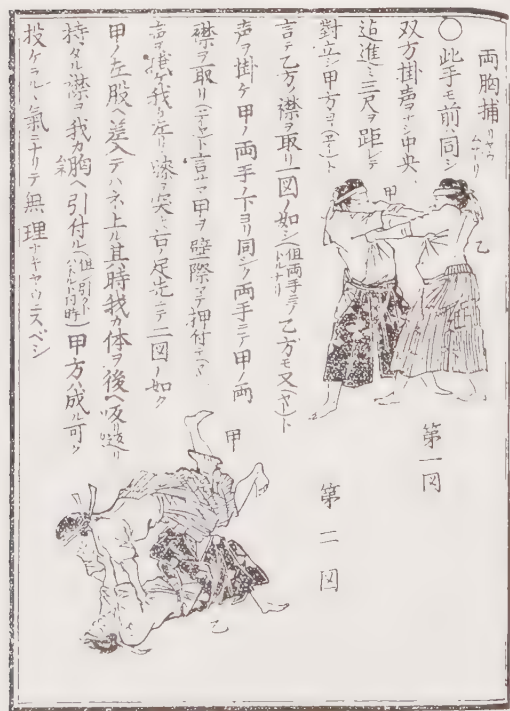 両胸捕リヤウムナトリ
◯此手モ前ニ同シ
双方掛声ヲナシ中央
迠進ミ三尺ヲ距レテ
對立シ甲方ヨリ(エイ)ト
言テ乙方ノ襟ヲ取リ一図ノ如シ(但両手ニテトルナリ)乙方モ又(ヤー)ト
声ヲ掛ケ甲ノ両手ノ下ヨリ同シク両手ニテ甲ノ両
襟ヲ取リ(ヤー)ト言テ甲ヲ壁際マテ押付
声ヲ掛ケ我カ左リ膝ヲ突キ右ノ足先ニテ二図ノ如ク
甲ノ左股ヘ差入テハネ上ル其時我カ体ヲ後ヘ反リ
持タル襟ヲ我カ胸ムネヘ引付ル(但シ引クトハネルト同時)甲方ハ成ル可ク
投ケラルヽ氣ニナリテ無理ナキヤウニスベシ
甲
乙
第一図
第二図
甲
乙